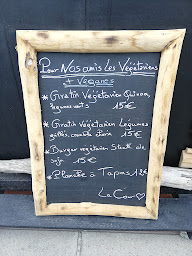 Pour Nos amis les Végétariens
+ Véganes
* Gratin Végétarien Quinoa,
légumes verts 15€
* Gratin Végétarien Légumes
grillés, 15€
* Burger végétarien Steak de
soja 15€
* Planche à Tapas 12€
La Cour ♡